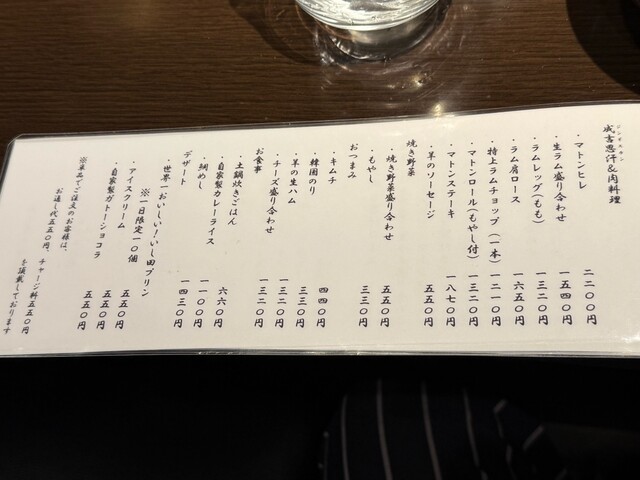 ジンギスカン
成吉思汗&肉料理
・マトンヒレ 二二〇〇円
・生ラム盛り合わせ 一五四〇円
・ラムレッグ(もも) 一三二〇円
・ラム肩ロース 一六五〇円
・特上ラムチョップ(一本) 一二一〇円
・マトンロール(もやし付) 一三二〇円
・マトンステーキ 一八七〇円
・羊のソーセージ 五五〇円
焼き野菜
・焼き野菜盛り合わせ 五五〇円
・もやし 三三〇円
おつまみ
・キムチ 四四〇円
・韓国のり 三三〇円
・羊の生ハム 一三二〇円
・チーズ盛り合わせ 一三二〇円
お食事
・土鍋炊きごはん 六六〇円
・自家製カレーライス 一一〇〇円
・鯛めし 一四三〇円
デザート
・世界一おいしい!いし田プリン
※一日限定一〇個 五五〇円
・アイスクリーム 五五〇円
・自家製ガトーショコラ 五五〇円
※単品でご注文のお客様は、
お通し代五五〇円、チャージ料五五〇円
を頂戴しております